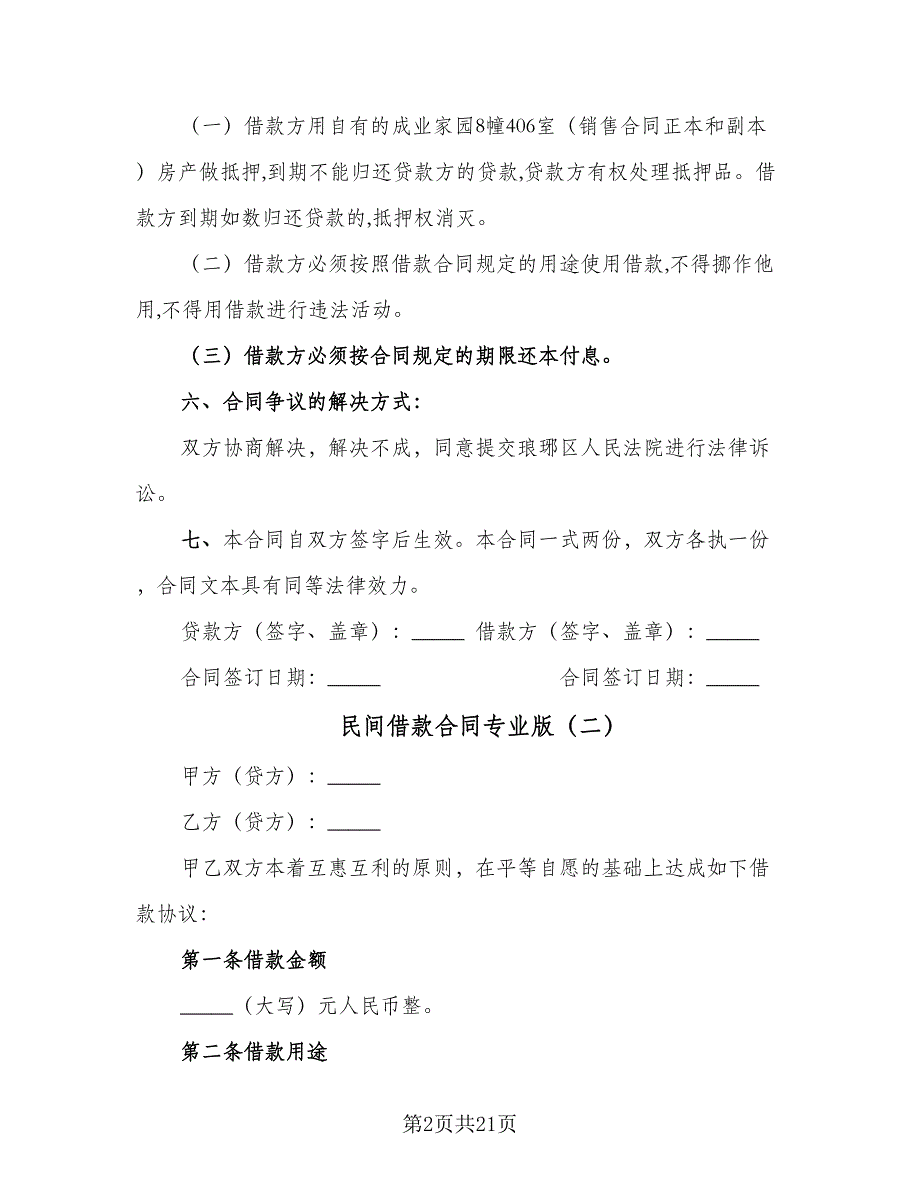 （一）借款方用自有的成业家园8幢406室（销售合同正本和副本
）房产做抵押,到期不能归还贷款方的贷款,贷款方有权处理抵押品。借
款方到期如数归还贷款的,抵押权消灭。
（二）借款方必须按照借款合同规定的用途使用借款,不得挪作他
用,不得用借款进行违法活动。
（三）借款方必须按合同规定的期限还本付息。
六、合同争议的解决方式：
双方协商解决，解决不成，同意提交琅琊区人民法院进行法律诉
讼。
七、本合同自双方签字后生效。本合同一式两份，双方各执一份
，合同文本具有同等法律效力。
贷款方（签字、盖章）：_____ 借款方（签字、盖章）：_____
合同签订日期：_____ 合同签订日期：_____
民间借款合同专业版（二）
甲方（贷方）：_____
乙方（贷方）：_____
甲乙双方本着互惠互利的原则，在平等自愿的基础上达成如下借
款协议：
第一条借款金额
_____（大写）元人民币整。
第二条借款用途
第2页共21页